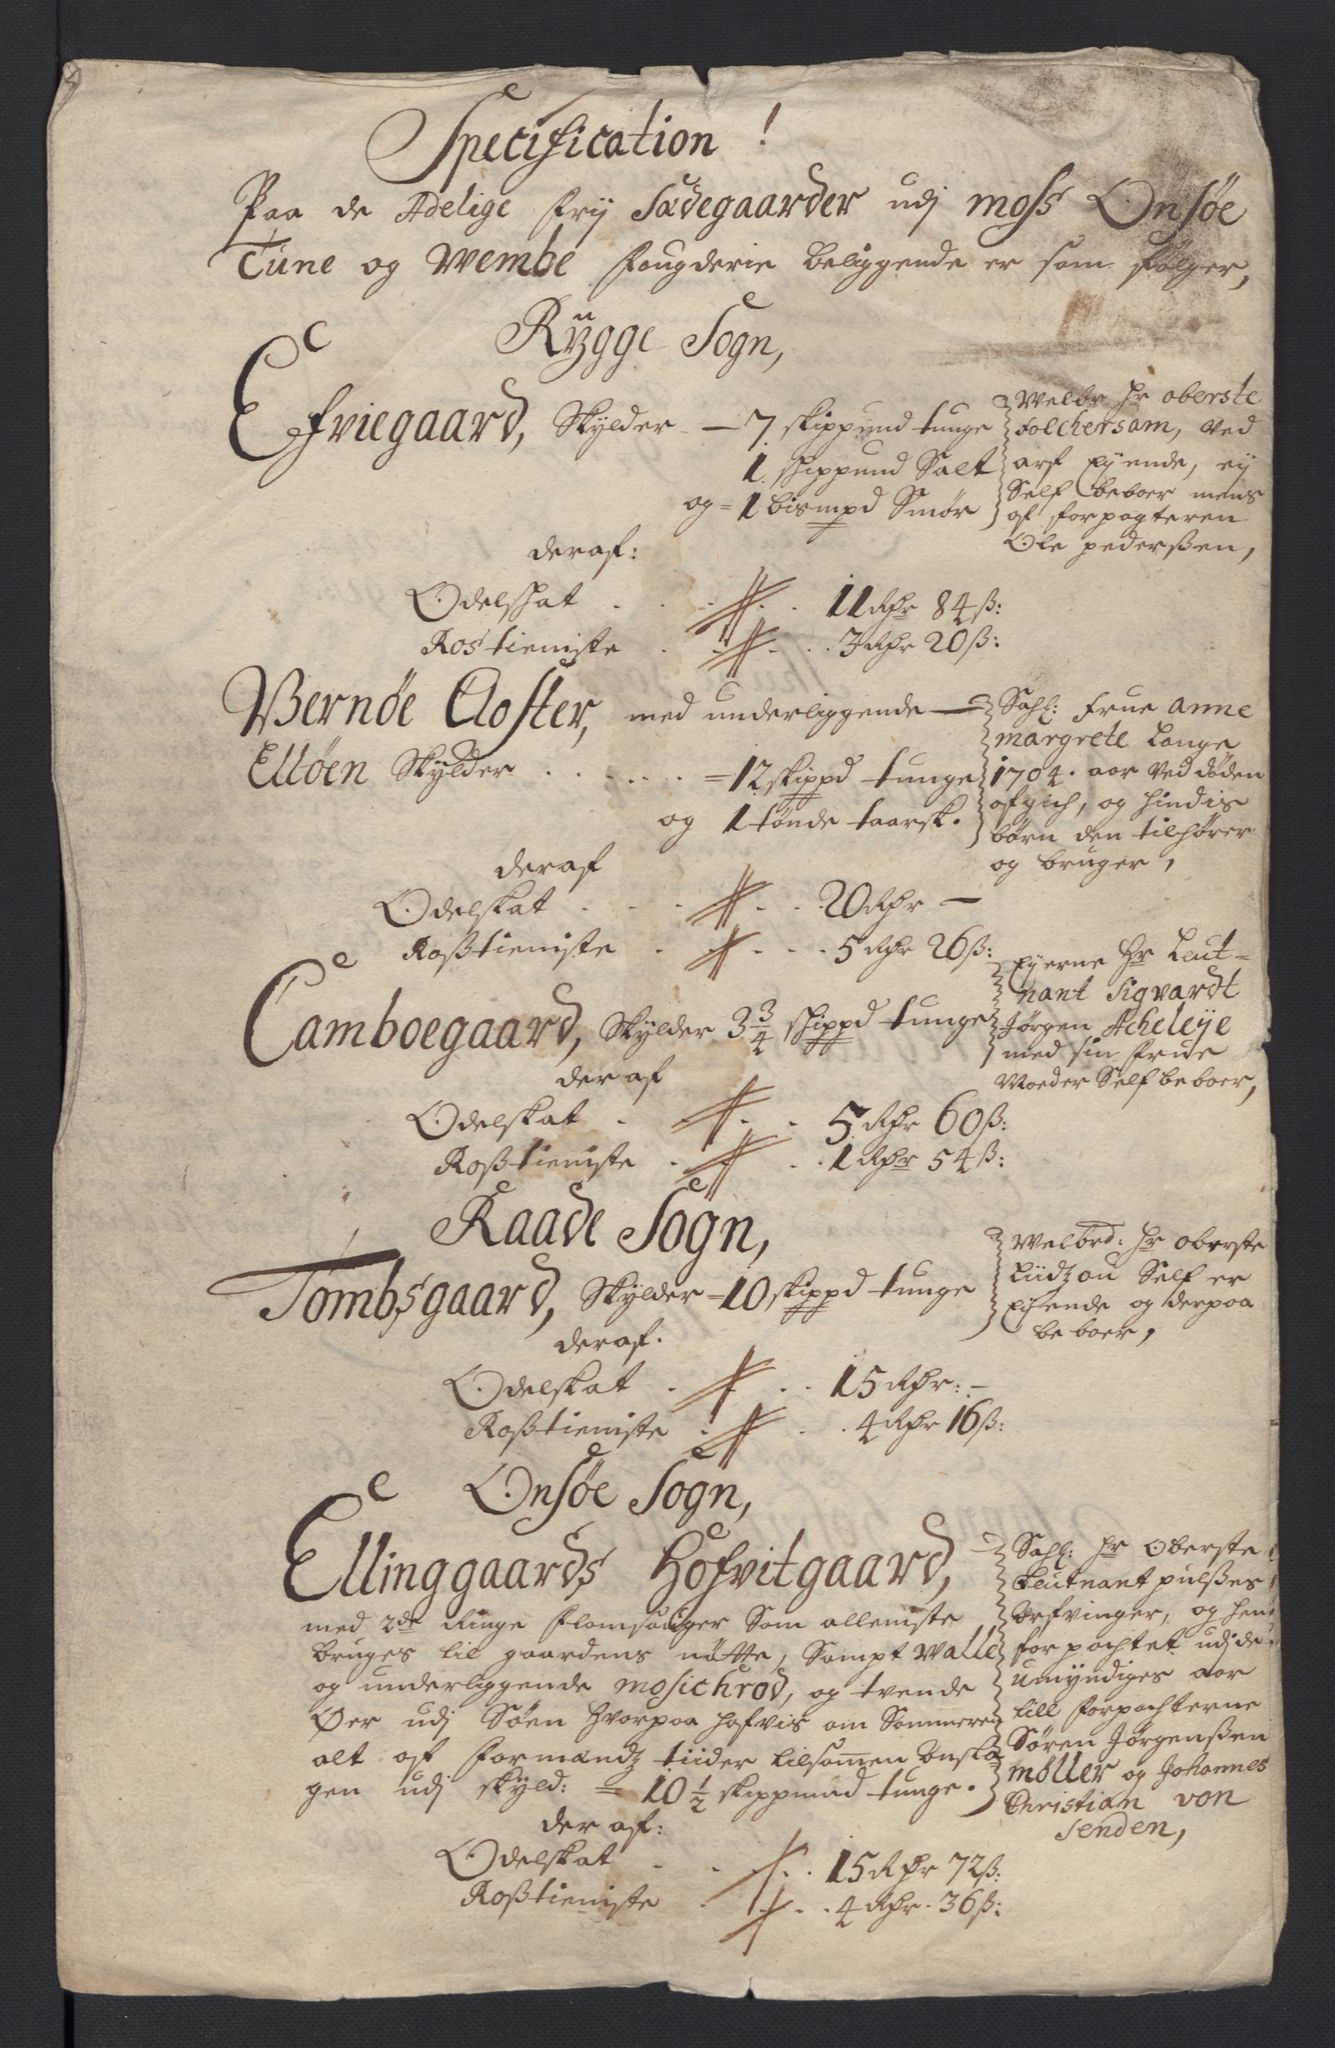 Specification !
Paa de Adelige frij Sædegaarder udj Moss Onsøe
Tune og Wembe fougderie beliggende er som følger,
Rygge Sogn,
Efviegaard, Skylder — 7 skippund tunge
1 skippund Salt
og = 1 bismpd Smør
Welbr hr oberste
Folchersam, ved
arf Eyende, ey
Self beboer mens
af forpagteren
Ole pederßen,
deraf:
Odelskat . . . 11 Rdr 84 ß:
Rostieniste . . . 3 Rdr 20 ß:
Vernøe Closter, med underliggende —
Elløen Skylder . . . . . = 12 skippd tunge
og 1 tønde taarsk.
Sahl: Frue Anne
margrete Lange
1704. aar ved døden
afgich, og hindis
børn den tilhører
og bruger,
deraf
Odelskat . . . . . 20 Rdr —
Roßtieniste . . . . 5 Rdr 26 ß:
Camboegaard, Skylder 3 3/4 skippd tunge
Eyerne hr Leut-
nant Siqvardt
Jørgen Acheleye
med sin Frue
Moeder Self beboer,
deraf
Odelskat . . . 5 Rdr 60 ß:
Roßtieniste . . . 1 Rdr 54 ß:
Raade Sogn,
Tombsgaard, Skylder = 10 skippd tunge
Welbrd: hr oberste
Lüdzou Self er
Eyende og derpaa
beboer,
deraf.
Odelskat . . . 15 Rdr: —
Roßtieniste . . . 4 Rdr 16 ß:
Onsøe Sogn,
Ellinggaards Hofvitgaard,
med 2de Ringe flomsauger Som alleniste
bruges til gaardens nøtte, Sampt Walle
og underliggende Mosichrod, og tvende
Øer udj Søen hvorpaa hafvis om Sommeren
alt af formandz tiider tilsammen Ansla-
gen udj skyld: = 10 1/2 skippund tunge.
Sahl: hr Oberste
Leutnant pulßes
Arfvinger, og hen
forpachtet udj de
umyndiges aar
till forpachterne
Søren Jørgenßen
møller og Johannes
Christian von
Senden,
deraf:
Odelskat . . . 15 Rdr 72 ß:
Roßtieniste . . . 4 Rdr. 36 ß: